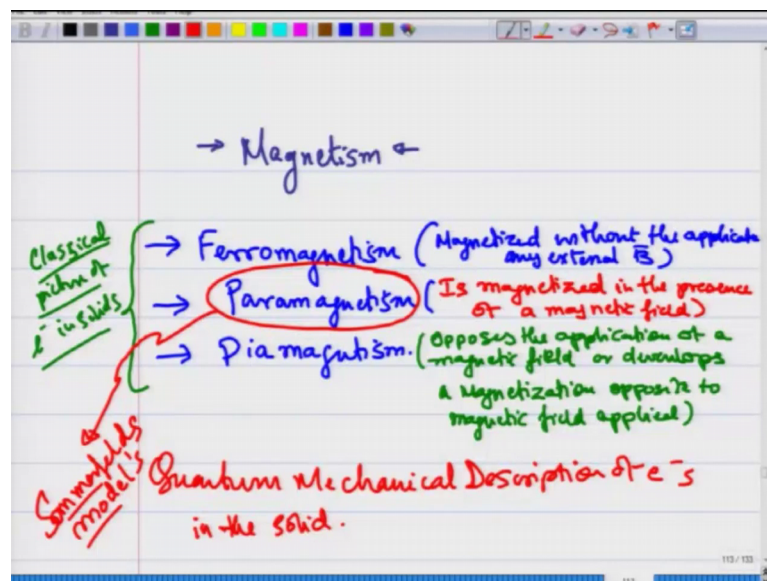 → Magnetism ←
Classical
picture of
e⁻ in solids
→ Ferromagnetism (Magnetized without the applicate
any external B)
→ Paramagnetism (Is magnetized in the presence
of a magnetic field)
→ Diamagnetism. (opposes the application of a
magnetic field or devenlops
a Magnetization opposite to
magnetic field applied)
Sommorfelds
model's
Quantum Mechanical Description of e⁻s
in the solid.
113 / 133